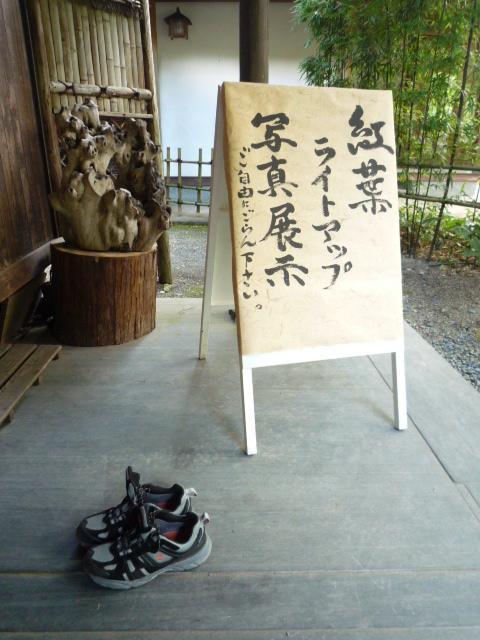 紅葉
ライトアップ
写真展示
ご自由にごらん下さい。